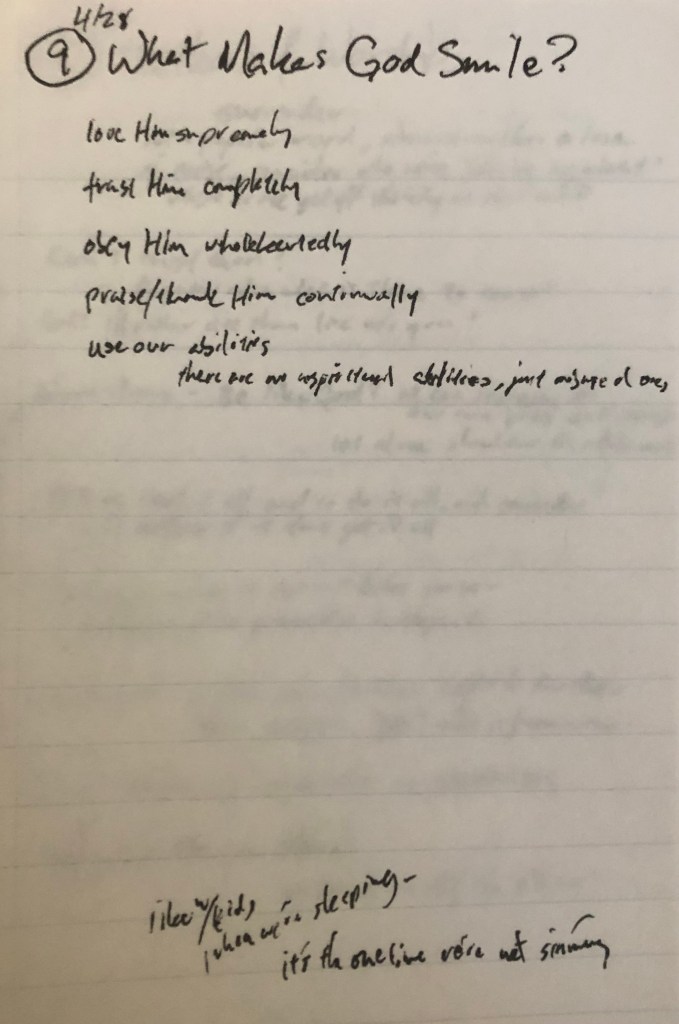 4/28
9 What Makes God Smile?
love Him supremely
trust Him completely
obey Him wholeheartedly
praise/thank Him continually
use our abilities
there are no unspiritual abilities, just misused ones
like w/kids
when we're sleeping-
it's the one time we're not sinning